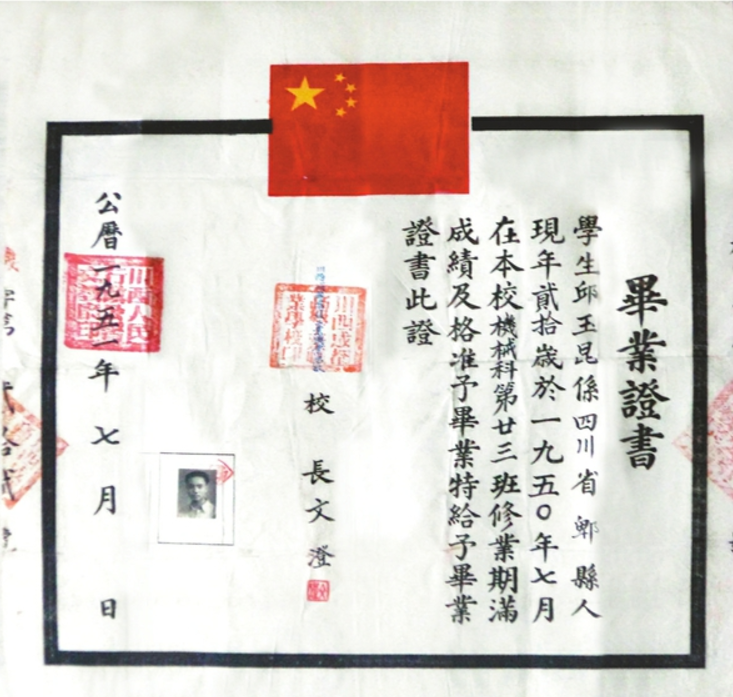 畢業證書
學生邱玉昆係四川省郫縣人
現年貳拾歲於一九五〇年七月
在本校機械科第廿三班修業期滿
成績及格准予畢業特給予畢業
證書此證
校長文澄
公曆一九五一年七月 日